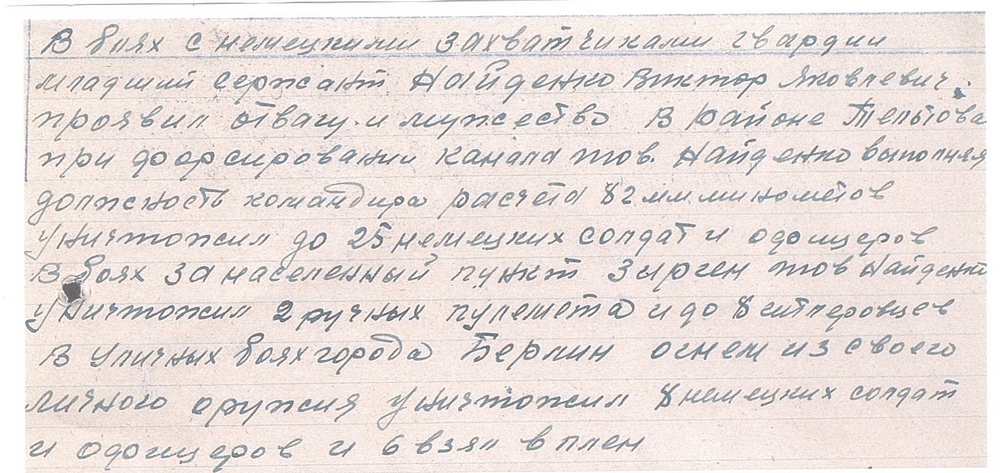 В боях с немецкими захватчиками гвардии
младший сержант Найденко Виктор Яковлевич.
проявил отвагу и мужество В районе Тельтова
при форсировании канала тов. Найденко выполняя
должность командира расчёта 82 мм миномётов
уничтожил до 25 немецких солдат и офицеров
В боях за населенный пункт Зирген тов Найденко
уничтожил 2 ручных пулемета и до 8 гитлеровцев
В уличных боях города Берлин огнем из своего
личного оружия уничтожил 8 немецких солдат
и офицеров и 6 взял в плен